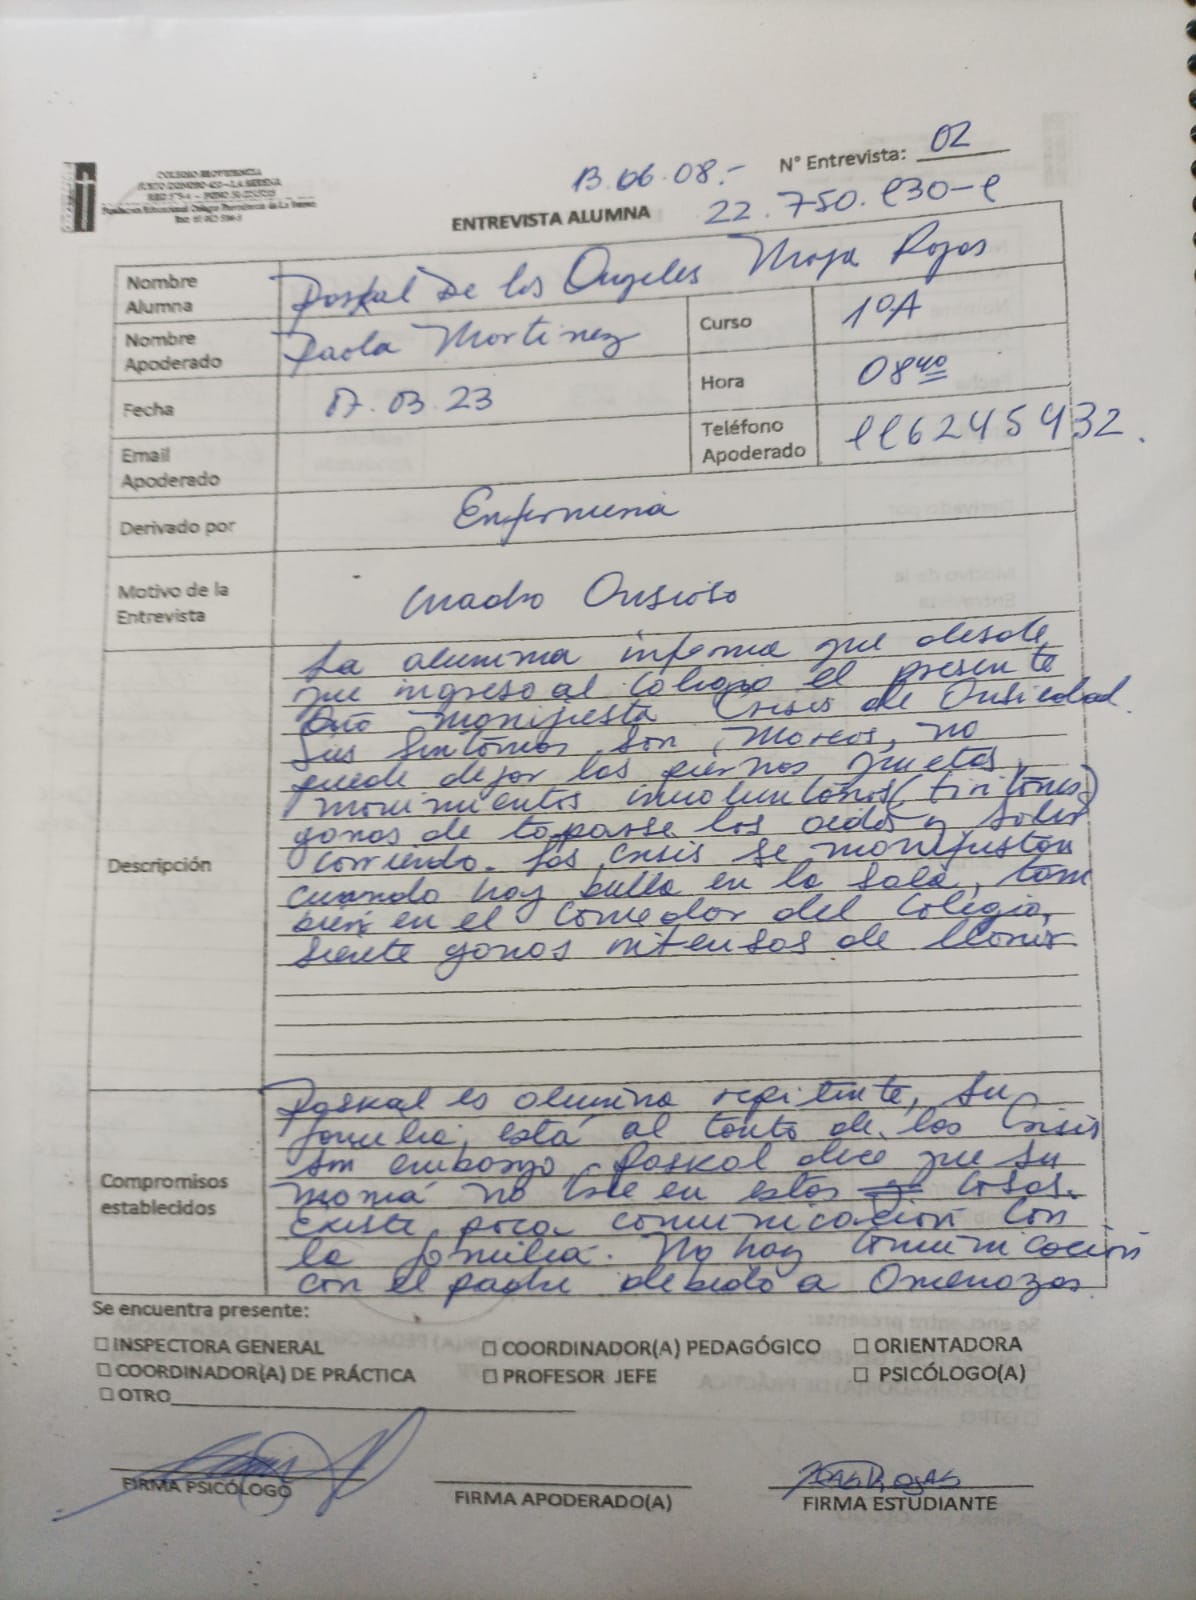 COLEGIO PROVIDENCIA
N° Entrevista: 02
13.06.08.-
ENTREVISTA ALUMNA
22.750.830-8
Nombre Alumna Paskal De los Angeles Moya Rojas
Nombre Apoderado Paola Martinez
Curso 1ºA
Fecha 07.03.23
Hora 08 40
Email Apoderado
Teléfono Apoderado 986245932.
Derivado por Enfermeria
Motivo de la Entrevista Cuadro Ansioso
Descripción
La alumna informa que desde
que ingreso al Colegio el presente
Año manifiesta Crisis de Ansiedad.
Sus síntomas son, mareos, no
puede dejar las piernas quietas,
movimientos involuntarios (tiritones)
ganas de taparse los oidos y salir
corriendo. Las crisis se manifiestan
cuando hay bulla en la sala, tam
bién en el Comedor del Colegio,
siente ganas intensas de llorar
Compromisos establecidos
Paskal es alumna repitente, su
familia, está al tanto de las Crisis
sin embargo, Paskal dice que su
mamá no cree en estas cosas.
Existe poca comunicación con
la familia. No hay Comunicación
con el padre debido a Amenazas.
Se encuentra presente:
☐ INSPECTORA GENERAL ☐ COORDINADOR(A) PEDAGÓGICO ☐ ORIENTADORA
☐ COORDINADOR(A) DE PRÁCTICA ☐ PROFESOR JEFE ☐ PSICÓLOGO(A)
☐ OTRO
FIRMA PSICÓLOGO
FIRMA APODERADO(A)
FIRMA ESTUDIANTE